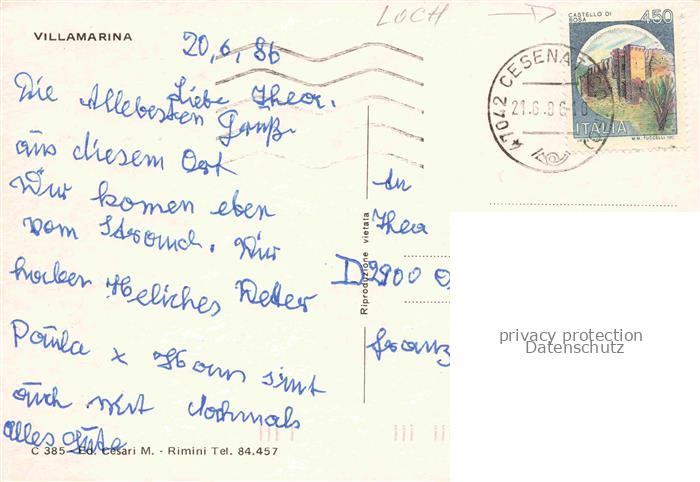 LOCH
VILLAMARINA
20,6,86
Liebe Thea.
Die Allebesten Gruß
aus diesem Ort
Wir komen eben
vom Strand. Wir
haben Heliches Weter
Paula x Hans sint
auch mit Nochmals
alles Gute
C 385 - Ed. Cesari M. - Rimini Tel. 84.457
Riproduzione vietata
47042 CESENAT
21.6.86
CASTELLO DI
ROSA
450
ITALIA
An
Thea
D 2900 O
Franz
privacy protection
Datenschutz